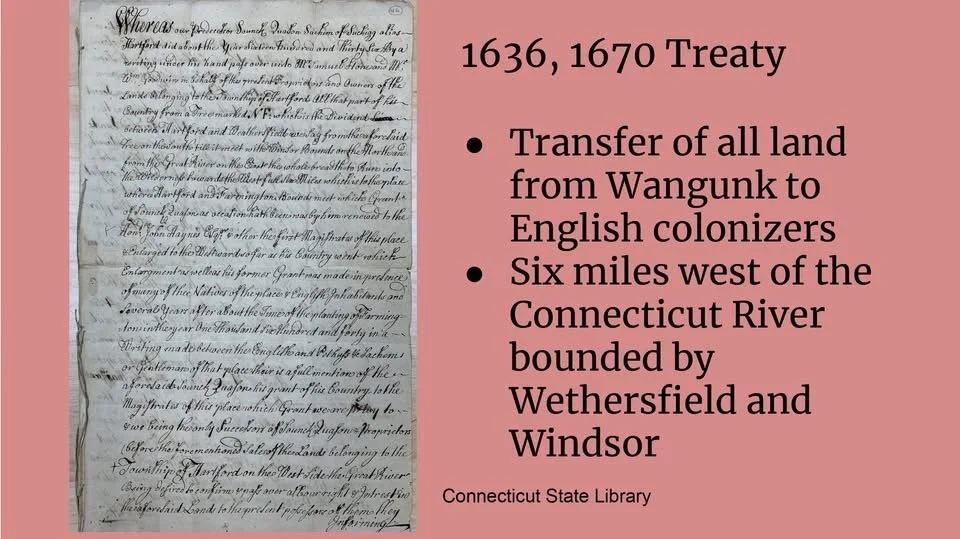 Whereas our Predecessor Sounck Quason Sachem of Suckiag alias
Hartford did about the Year Sixteen hundred and thirty Six By a
writing under his hand pass over unto Mr Samuel Stone and Mr
Wm Goodwin in behalf of the present Proprietors and Owners of the
Lands belonging to the Township of Hartford All that part of his
Country from a Tree marked N F which is the Dividend
between Hartford and Weathersfield we say from the aforesaid
Tree on the South till it meet with Windsor Bounds on the North and
from the Great River on the East the whole breadth to Run into
the Wilderness towards the West full Six Miles which is to the place
where Hartford and Farmington Bounds meet which Grant
of Sounck Quason as occasion hath been was by him renewed to the
Honl John Haynes Esqr & other the first Magistrates of this place
& Enlarged to the Westward so far as his Country went which
Enlargment as well as his former Grant was made in presence
of many of the Natives of the place & English Inhabitants and
Several Years after about the time of the planting of Farming
ton in the year One Thousand Six Hundred and forty in a
Writing made between the English and Pethuss & Sachems
or Gentlemen of that place their is a full mention of the
aforesaid Sounck Quason his grant of his Country to the
Magistrates of this place which Grant we are to
& we being the only Successors of Sounck Quason & Proprietors
(before the forementioned Sale) of the Lands belonging to the
Township of Hartford on the West Side the Great River
Being desired to confirm & pass over all our right & Intrest in
the aforesaid Lands to the present possessors of them they
Informing
1636, 1670 Treaty
● Transfer of all land
from Wangunk to
English colonizers
● Six miles west of the
Connecticut River
bounded by
Wethersfield and
Windsor
Connecticut State Library